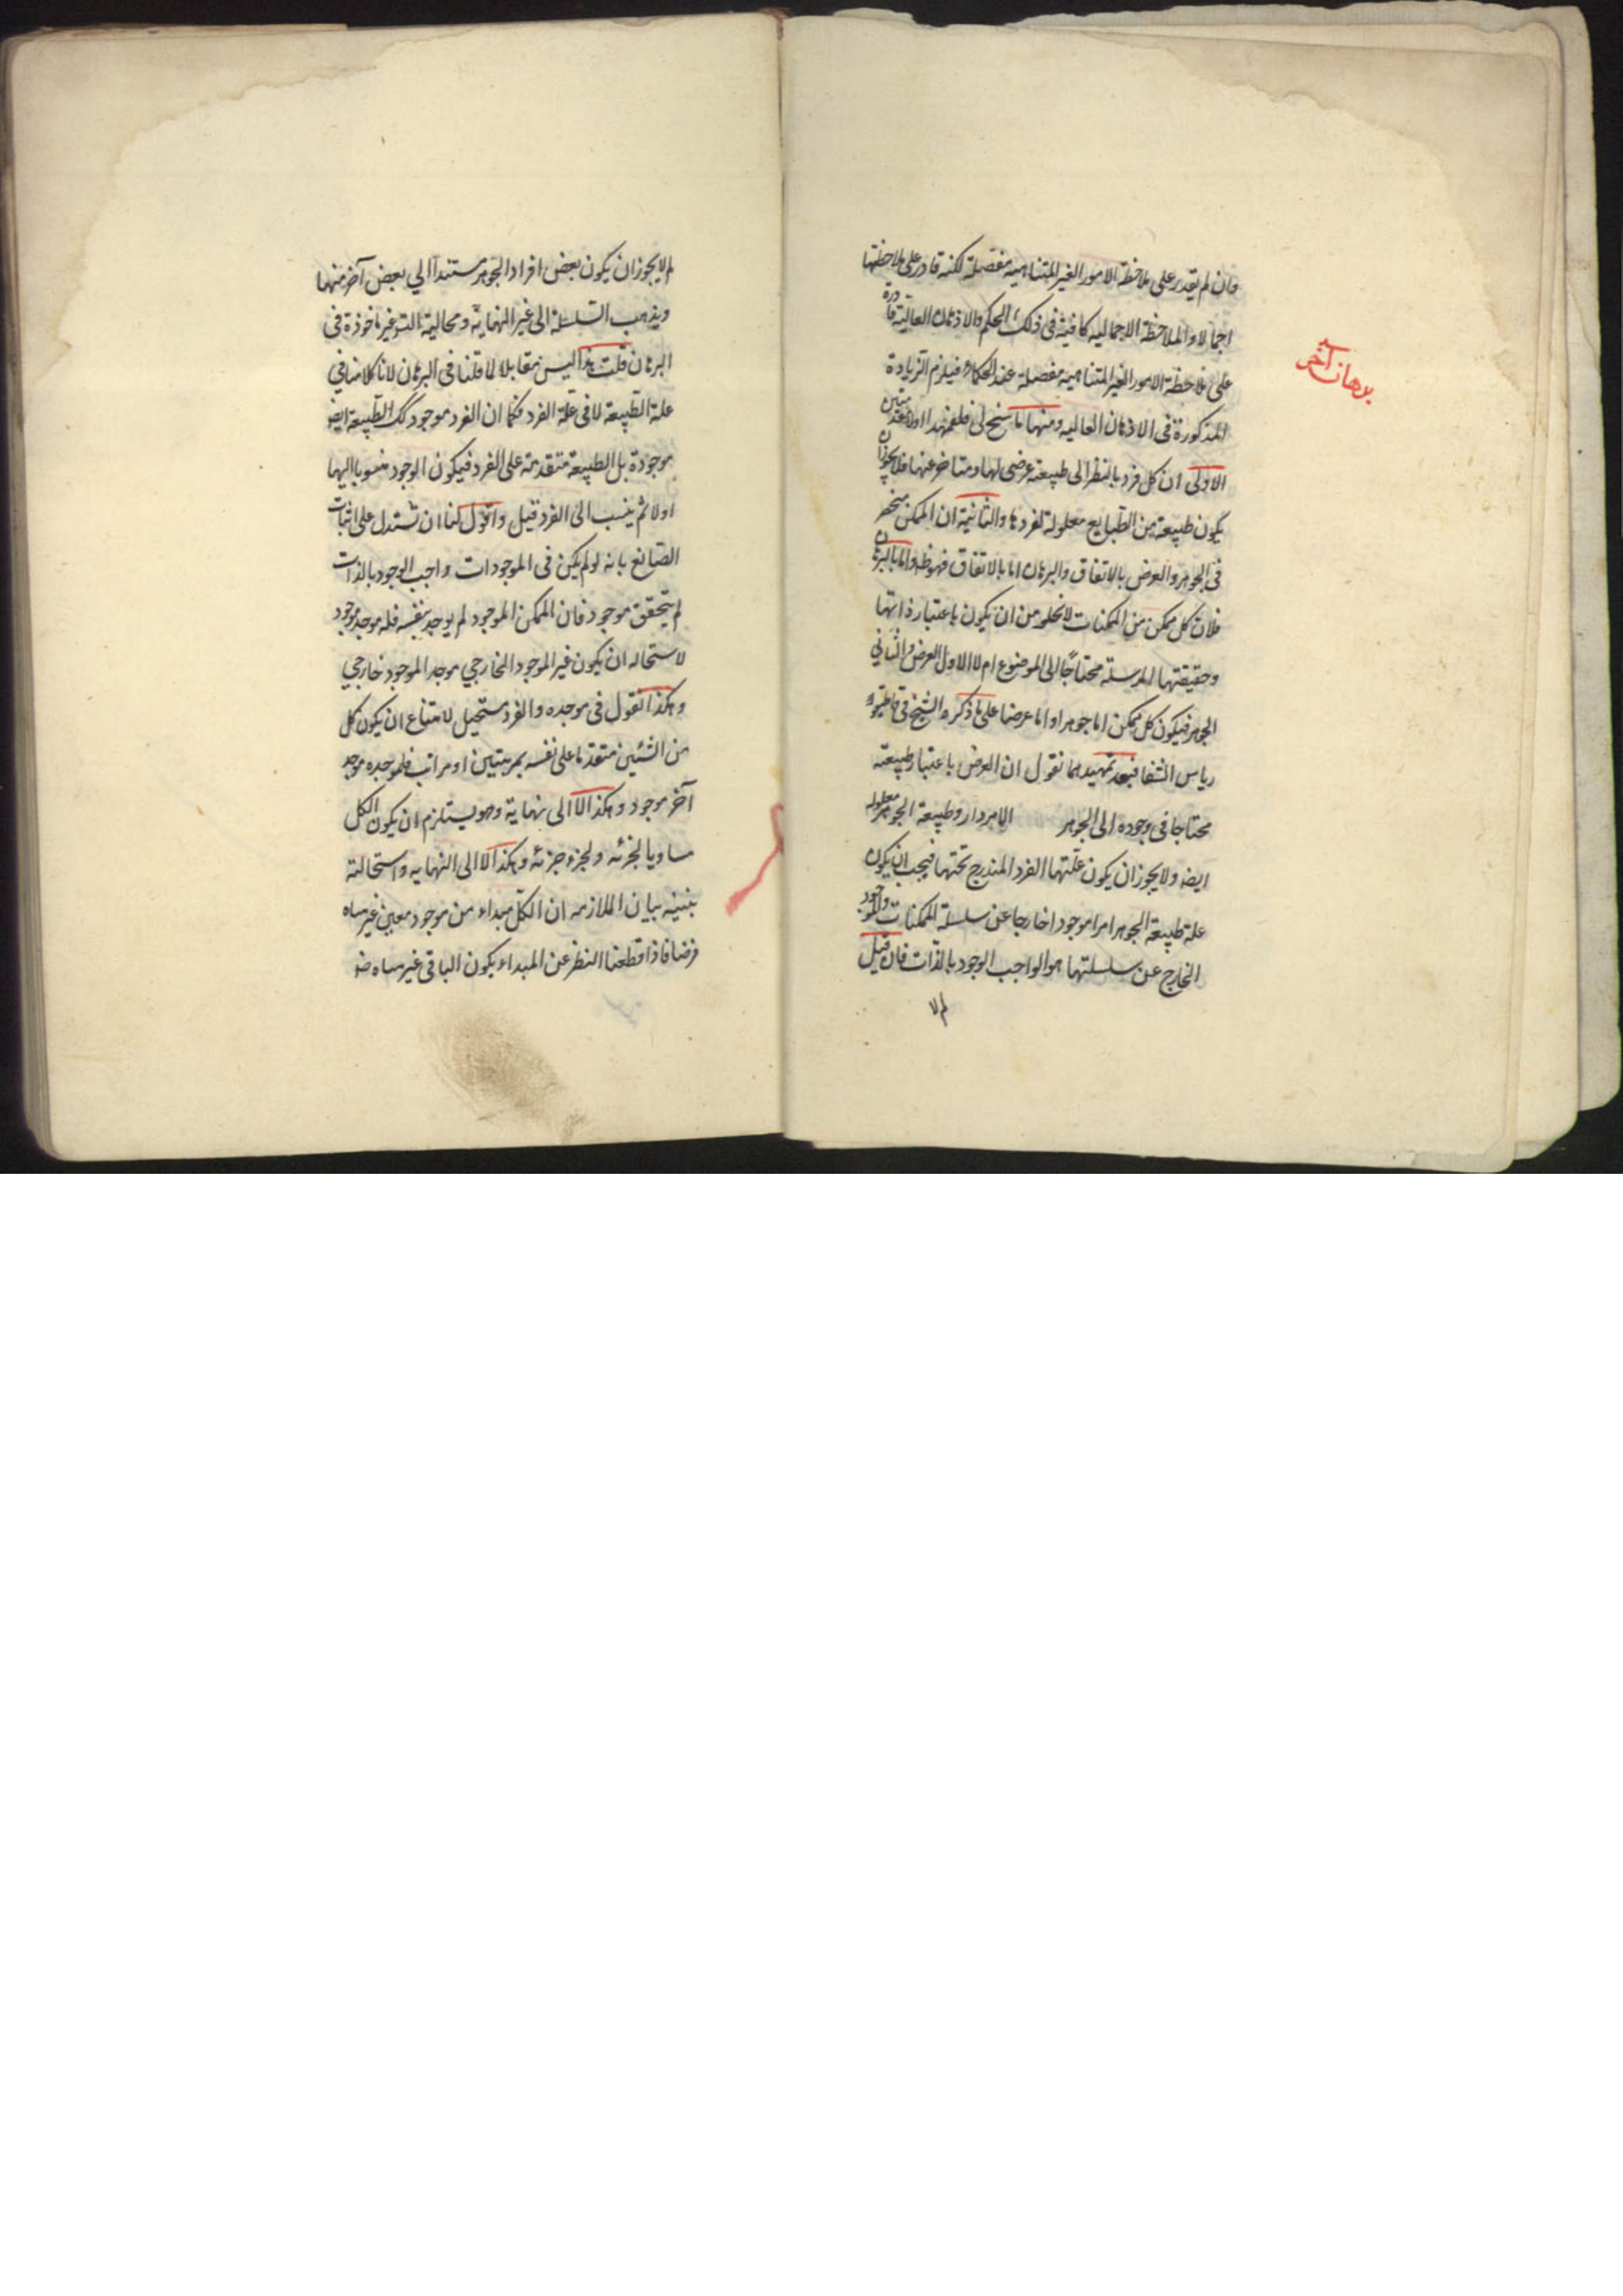 وان لم يقدر على ملاحظة الامور الغير المتناهيه مفصلة لكنه قادر على ملاحظتها
اجمالا والملاحظة الاجماليه كافية فى ذلك الحكم والاذهان العالية قادرة
على ملاحظة الامور الغير المتناهيه مفصلة عند الحكماء فيلزم الزيادة
برهان آخر
المذكورة فى الاذهان العاليه ومنها ما سنح لى فلنمهد اولا مقدمتين
الاولى ان كل فرد بالنظر الى طبيعته عرضى لها ومتاخر عنها فلا يجوز ان
يكون طبيعة من الطبايع معلولة لفردها والثانية ان الممكن منحصر
فى الجوهر والعرض بالاتفاق والبرهان اما بالاتفاق فهو ظ واما بالبرهان
فلان كل ممكن من الممكنات لا يخلو من ان يكون باعتبار ذاتها
وحقيقتها المرسلة محتاجًا الى الموضوع ام لا الاول العرض والثاني
الجوهر فيكون كل ممكن اما جوهرا واما عرضا على ما ذكره الشيخ فى قاطيغو
رياس الشفا فبعد تمهيدهما نقول ان العرض باعتبار طبيعته
محتاجا فى وجوده الى الجوهر والا لدار وطبيعة الجوهر معلوله
ايضا ولا يجوز ان يكون علتها الفرد المندرج تحتها فيجب ان يكون
علة طبيعة الجوهر امرا موجودا خارجا عن سلسلة الممكنات والموجود
الخارج عن سلسلتها هو الواجب الوجود بالذات فان قيل
لم لا
لم لا يجوز ان يكون بعض افراد الجوهر مستندا الي بعض آخر منها
ويذهب السلسلة الى غير النهاية ومحالية التس غير ماخوذة فى
البرهان قلت هذا ليس بمقابلا لما قلنا فى البرهان لانا كلامنا في
علة الطبيعة لا فى علة الفرد فكما ان الفرد موجود كك الطبيعة ايضا
موجودة بل الطبيعة متقدمة على الفرد فيكون الوجود منسوبا اليها
اولا ثم ينسب الى الفرد قيل واقول لنا ان نستدل على اثبات
الصانع بانه لو لم يكن فى الموجودات واجب الوجود بالذات
لم يتحقق موجود فان الممكن الموجود لم يوجد بنفسه فله موجد موجود
لاستحاله ان يكون غير الموجود الخارجي موجد الموجود خارجي
وهكذا نقول فى موجده والفرد مستحيل لامتناع ان يكون كل
من الشئين متقدما على نفسه بمرتبتين او مراتب فلموجده موجد
آخر موجود وهكذا لا الى نهاية وهو يستلزم ان يكون الكل
مساويا لجزئه ولجزء جزئه وهكذا لا الى النهايه واستحالته
بينه بيان الملازمه ان الكل مبداء من موجود معين غير متناه
فرضا فاذا قطعنا النظر عن المبداء يكون الباقى غير متناه ضر